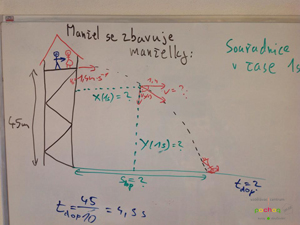 Manžel se zbavuje
manželky:
Souřadnice
v čase 1s
45m
X(1s) = ?
v = ?
Y(1s) = ?
S dop = ?
t dop = ?
t dop = 45/10 = 4,5 s